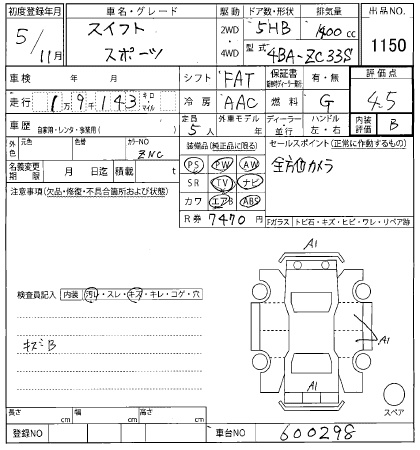 初度登録年月 車名・グレード 駆動 ドア数・形状 排気量 出品NO.
5/11月 スイフト スポーツ 2WD・4WD 5HB 1400cc 1150
型式 4BA-ZC33S
車検 年 月 シフト FAT 保証書 有・無 評価点
走行 1万9千143 キロ・マイル 冷房 AAC 燃料 G 4.5
車歴 自家用・レンタ・事業用( ) 定員 5人 外車モデル 年 ディーラー・並行 ハンドル 左・右 内装評価 B
外色 元色 色替 カラーNO ZNC 装備品(純正品に限る) セールスポイント(正常に作動するもの)
名義変更期限 月 日迄 積載 t PS PW AW 全方位カメラ
注意事項(欠品・修復・不具合箇所および状態) SR TV ナビ
カワ エアB ABS
R券 7470円 Fガラス トビ石・キズ・ヒビ・ワレ・リペア跡
A1
検査員記入 内装 汚れ・スレ・キズ・キレ・コゲ・穴
キズB
A1
A1
スペア
長さ cm 幅 cm 高さ cm
登録NO 車台NO 600298